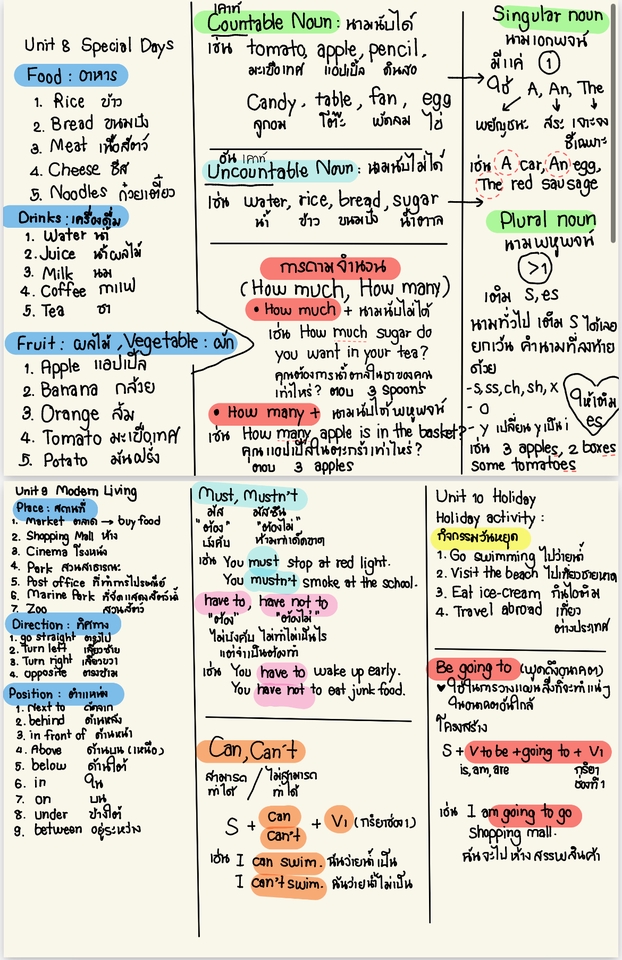 Unit 8 Special Days
Food : อาหาร
1. Rice ข้าว
2. Bread ขนมปัง
3. Meat เนื้อสัตว์
4. Cheese ชีส
5. Noodles ก๋วยเตี๋ยว
Drinks : เครื่องดื่ม
1. Water น้ำ
2. Juice น้ำผลไม้
3. Milk นม
4. Coffee กาแฟ
5. Tea ชา
Fruit : ผลไม้ , Vegetable : ผัก
1. Apple แอปเปิ้ล
2. Banana กล้วย
3. Orange ส้ม
4. Tomato มะเขือเทศ
5. Potato มันฝรั่ง
เคาท์
Countable Noun : นามนับได้
เช่น tomato, apple, pencil,
มะเขือเทศ แอปเปิ้ล ดินสอ
Candy, table, fan, egg
ลูกอม โต๊ะ พัดลม ไข่
อัน เคาท์
Uncountable Noun : นามนับไม่ได้
เช่น water, rice, bread, sugar
น้ำ ข้าว ขนมปัง น้ำตาล
การถามจำนวน
(How much, How many)
• How much + นามนับไม่ได้
เช่น How much sugar do
you want in your tea?
คุณต้องการน้ำตาลในชาของคุณ
เท่าไหร่? ตอบ 3 spoons
• How many + นามนับได้พหูพจน์
เช่น How many apple is in the basket?
คุณแอปเปิ้ลในตะกร้าเท่าไหร่?
ตอบ 3 apples
Singular noun
นามเอกพจน์
มีแค่ 1
ใช้ A, An, The
พยัญชนะ สระ เจาะจง
ชี้เฉพาะ
เช่น A car, An egg,
The red sausage
Plural noun
นามพหูพจน์
>1
เติม S, es
นามทั่วไป เติม S ได้เลย
ยกเว้น คำนามที่ลงท้าย
ด้วย
- s, ss, ch, sh, x
- O
- y เปลี่ยน y เป็น i
ให้เติม
es
เช่น 3 apples, 2 boxes
some tomatoes
Unit 9 Modern Living
Place : สถานที่
1. Market ตลาด → buy food
2. Shopping Mall ห้าง
3. Cinema โรงหนัง
4. Park สวนสาธารณะ
5. Post office ที่ทำการไปรษณีย์
6. Marine Park ที่จัดแสดงสัตว์น้ำ
7. Zoo สวนสัตว์
Direction : ทิศทาง
1. go straight ตรงไป
2. Turn left เลี้ยวซ้าย
3. Turn right เลี้ยวขวา
4. opposite ตรงข้าม
Position : ตำแหน่ง
1. Next to ถัดจาก
2. behind ด้านหลัง
3. in front of ด้านหน้า
4. Above ด้านบน (เหนือ)
5. below ด้านใต้
6. in ใน
7. on บน
8. under ข้างใต้
9. between อยู่ระหว่าง
Must, Mustn't
มัส มัสซึน
"ต้อง" "ต้องไม่"
บังคับ ห้ามทำเด็ดขาด
เช่น You must stop at red light.
You mustn't smoke at the school.
have to, have not to
"ต้อง" "ต้องไม่"
ไม่บังคับ ไม่ทำไม่เป็นไร
แต่จำเป็นต้องทำ
เช่น You have to wake up early.
You have not to eat junk food.
Can, Can't
สามารถ / ไม่สามารถ
ทำได้ ทำได้
S + Can + V1 (กริยาช่อง1)
Can't
เช่น I can swim. ฉันว่ายน้ำเป็น
I can't swim. ฉันว่ายน้ำไม่เป็น
Unit 10 Holiday
Holiday activity :
กิจกรรมวันหยุด
1. Go swimming ไปว่ายน้ำ
2. Visit the beach ไปเที่ยวชายหาด
3. Eat ice-cream กินไอติม
4. Travel abroad เที่ยว
ต่างประเทศ
Be going to (พูดถึงอนาคต)
♥ใช้ในการวางแผนสิ่งที่จะทำแน่ๆ
ในอนาคตอันใกล้
โครงสร้าง
S + V to be + going to + V1
is, am, are กริยา
ช่องที่ 1
เช่น I am going to go
shopping mall.
ฉันจะไปห้างสรรพสินค้า